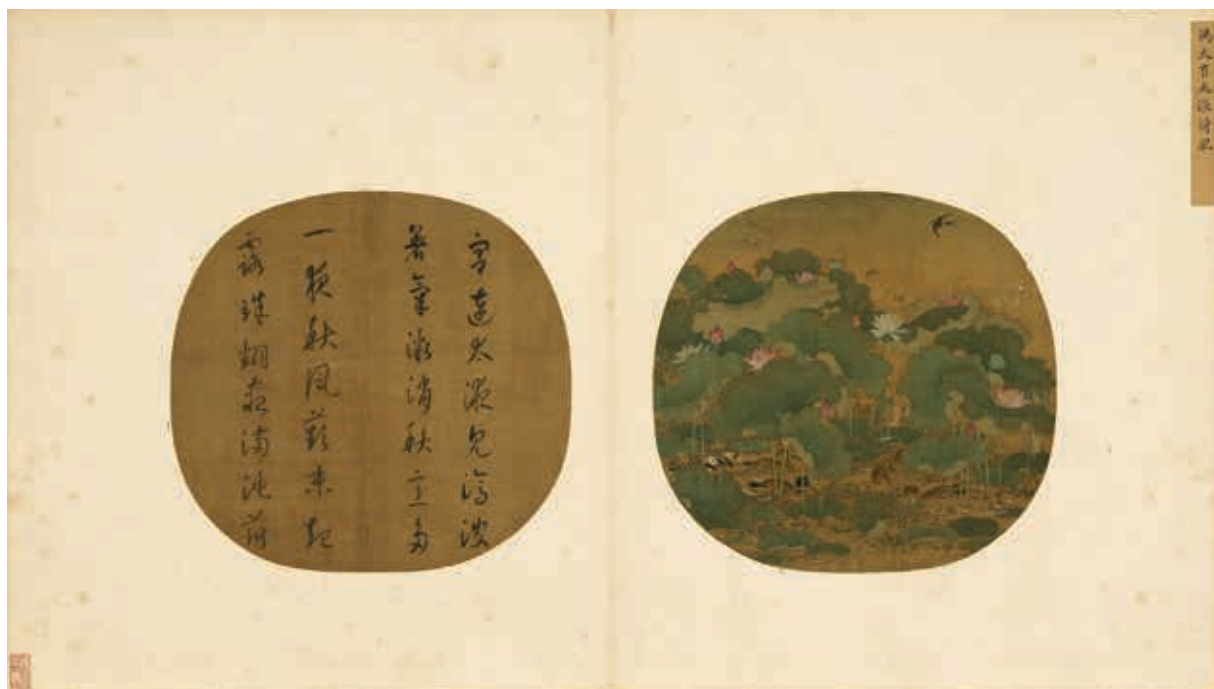 馮大有太液荷風
宮連太液見滄波
暑氣微消秋意多
一夜風蘋末起
露珠翻盡滿池荷